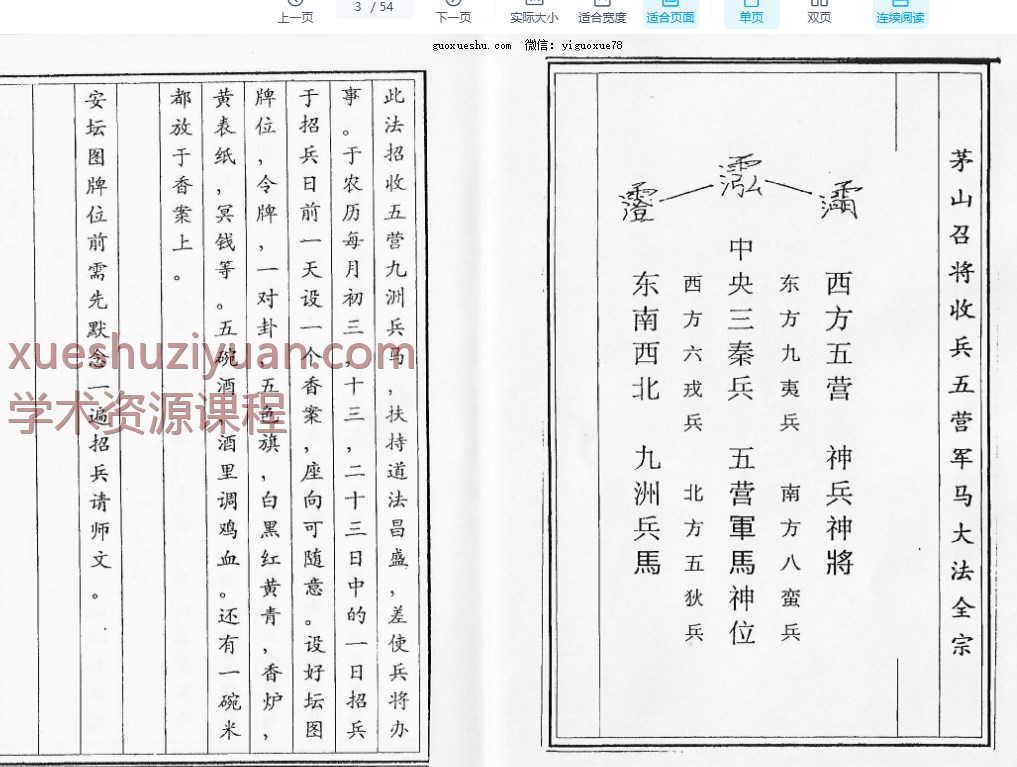 上一页
3 / 54
下一页
实际大小
适合宽度
适合页面
单页
双页
连续阅读
guoxueshu.com 微信: yiguoxue78
茅山召将收兵五营军马大法全宗
西方五营 神兵神將
东方九夷兵 南方八蛮兵
中央三秦兵 五营軍馬神位
西方六戎兵 北方五狄兵
东南西北 九洲兵馬
此法招收五营九洲兵马,扶持道法昌盛,差使兵将办
事。于农历每月初三,十三,二十三日中的一日招兵
于招兵日前一天设一个香案,座向可随意。设好坛图
牌位,令牌,一对卦,五色旗,白黑红黄青,香炉,
黄表纸,冥钱等。五碗酒,酒里调鸡血。还有一碗米
都放于香案上。
安坛图牌位前需先默念一遍招兵请师文。
xueshuziyuan.com
学术资源课程